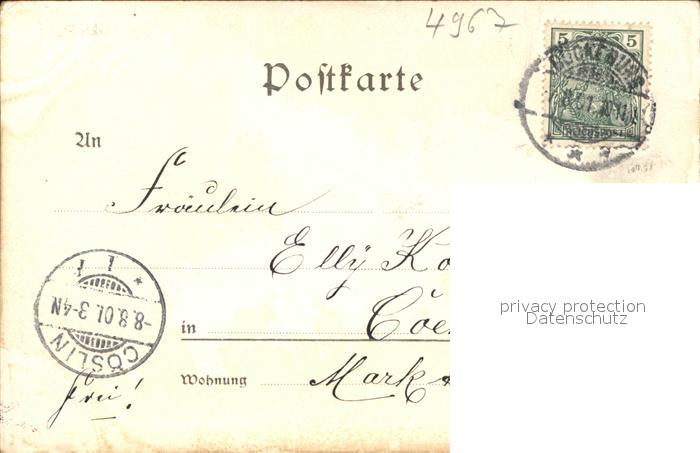 4967
5 5
Postkarte
REICHSPOST
An
Fräulein
Elly Ko
* 1 f
-8.8.01.3-4N
CÖSLIN
in Cöe
privacy protection
Datenschutz
Wohnung Mark
frei!